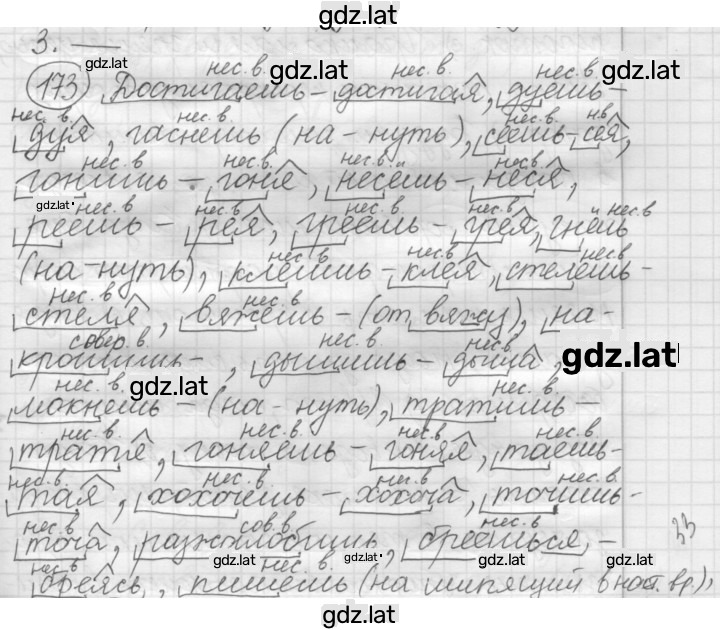 gdz.lat
3. —
gdz.lat нес. в. gdz.lat нес. в. нес. в. gdz.lat
173 Достигаешь - достигая, дуешь -
нес. в. нес. в. нес. в. н.в
дуя, гаснешь (на - нуть), сеешь - сея,
нес. в. нес. в. нес. в. нес. в.
гонишь - гоня, несёшь - неся,
gdz.lat нес. в нес. в. нес. в. нес. в. нес. в
реешь - рея, греешь - грея, гнёшь
нес. в. нес. в. нес. в.
(на - нуть), клеишь - клея, стелешь -
нес. в. нес. в.
стеля, вяжешь - (от вяжу), на-
совер. в. нес. в. нес. в
крошишь - , дышишь - дыша, gdz.lat
нес. в. gdz.lat нес. в.
мокнешь - (на - нуть), тратишь -
нес. в. нес. в. нес. в. нес. в.
тратя, гоняешь - гоняя, таешь -
нес. в. нес. в. нес. в. нес. в.
тая, хохочешь - хохоча, точишь -
нес. в сов. в. нес. в
точа, разжалобишь, бреешься, - 33
нес. в. gdz.lat нес. в. gdz.lat gdz.lat
бреясь, пишешь (на шипящий в наст. вр.),
gdz.lat